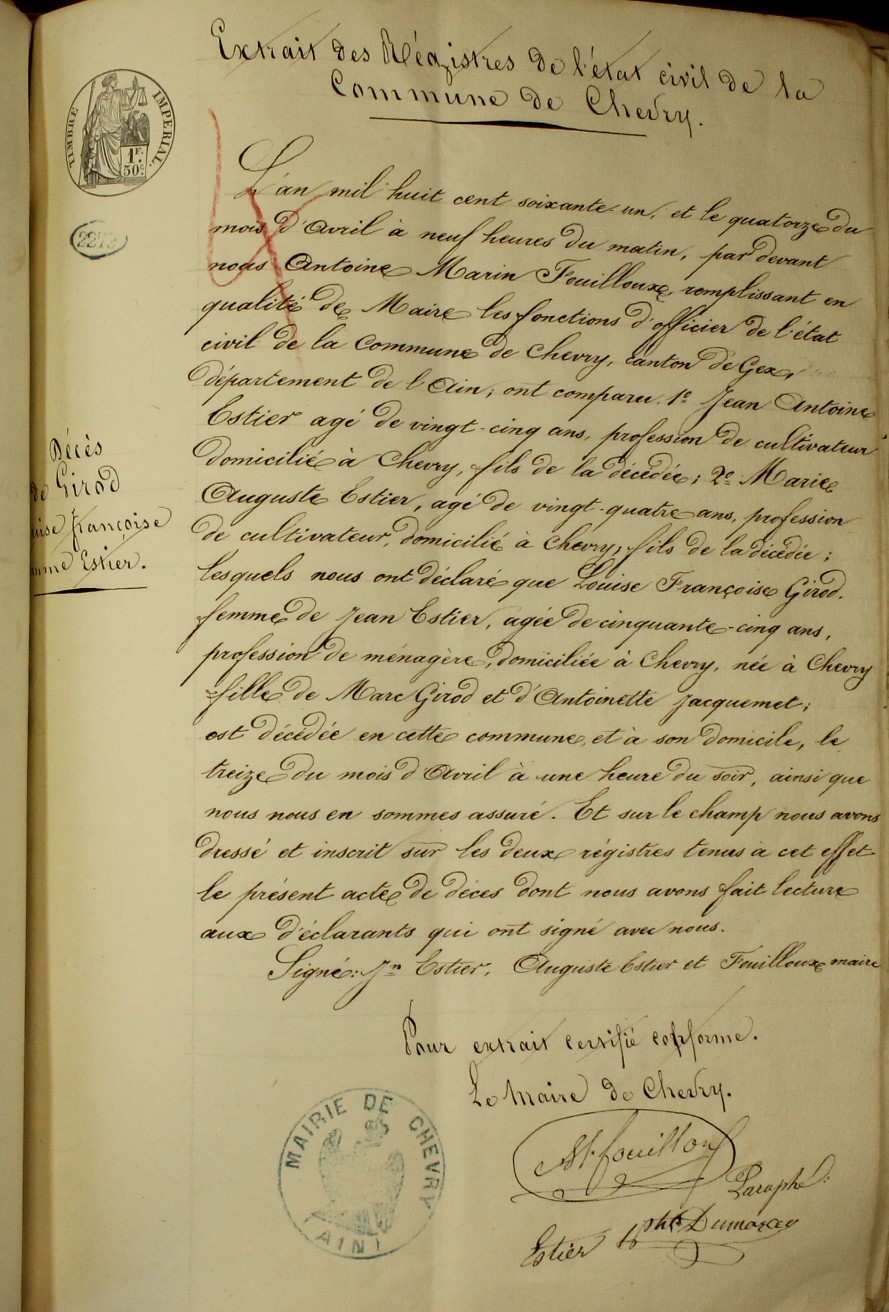 Extrait des Régistres de l'état civil de la
Commune de Chevry.
TIMBRE IMPERIAL.
1F.
50c.
2273
L'an mil huit cent soixante-un, et le quatorze du
mois d'Avril à neuf heures du matin, par devant
nous Antoine Marin Fouilloux, remplissant en
qualité de Maire les fonctions d'officier de l'état
civil de la Commune de Chevry, canton de Gex,
département de l'Ain; ont comparu 1º Jean Antoine
Estier agé de vingt-cinq ans, profession de cultivateur
domicilié à Chevry, fils de la décédée; 2º Marie
Auguste Estier, agé de vingt-quatre ans, profession
de cultivateur, domicilié à Chevry, fils de la décédée;
lesquels nous ont déclaré que Louise Françoise Girod.
femme de Jean Estier, agée de cinquante-cinq ans,
profession de ménagère, domiciliée à Chevry, née à Chevry
fille de Marc Girod et d'Antoinette Jacquemet;
est décédée en cette commune, et à son domicile, le
treize du mois d'Avril à une heure du soir, ainsi que
nous nous en sommes assuré. Et sur le champ nous avons
dressé et inscrit sur les deux régistres tenus à cet effet
le présent acte de décès dont nous avons fait lecture
aux déclarants qui ont signé avec nous.
Signé: Jn Estier, Auguste Estier et Fouilloux maire
Décès
de Girod
uise françoise
mme Estier.
Pour extrait certifié conforme.
Le Maire de Chevry.
MAIRIE DE CHEVRY
(AIN)
Fouilloux
Paraphé:
Estier Dumorey